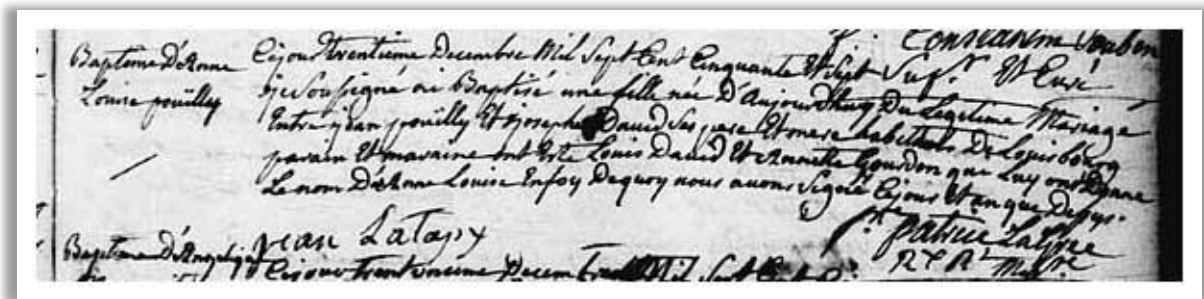 Baptême D'Anne
Louise pouilly
Cejour trentieme Decembre Mil Sept Cent Cinquante Et Sept
je Sousigné ai Baptisé une fille née D'Aujourdhuy Du Legitime Mariage
Entre jean pouilly Et josephe David Ses pere Et mere habitants De Louisbourg
parain Et maraine ont Esté Louis David Et Annette Gourdon que Luy ont Donne
Le nom D'Anne Louise Enfoy Dequoy nous avons Signé Cejour Et an que Depus.
jean Latapy
fr. patrice
Baptême
Cejour Decembre Mil Sept Cent